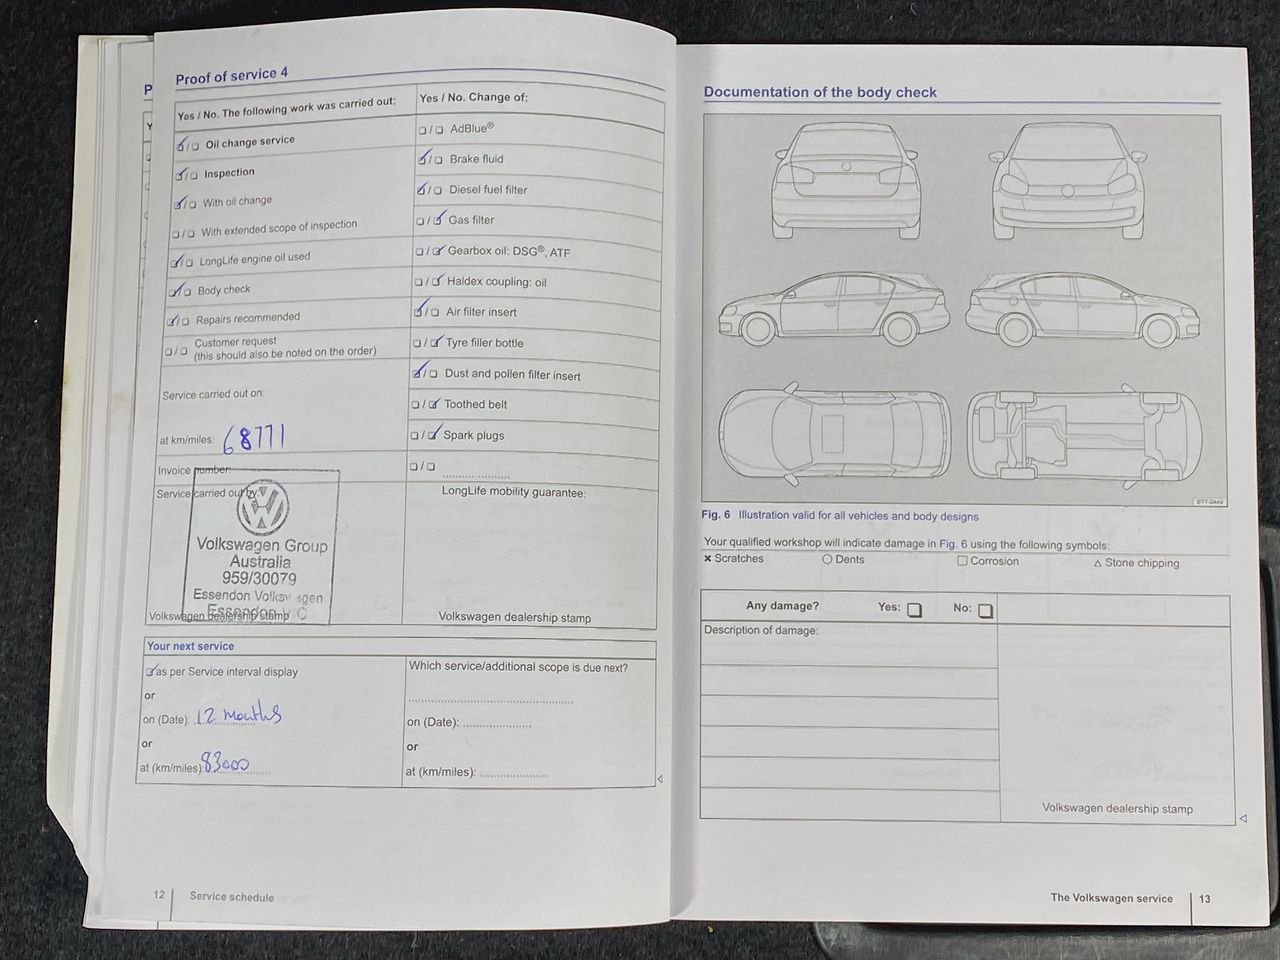 Proof of service 4
Yes / No. The following work was carried out:
Oil change service
Inspection
With oil change
With extended scope of inspection
LongLife engine oil used
Body check
Repairs recommended
Customer request
(this should also be noted on the order)
Service carried out on:
at km/miles: 68771
Invoice number:
Service carried out by:
Volkswagen Group
Australia
959/30079
Essendon Volkswagen
Essendon VIC
Volkswagen dealership stamp
Yes / No. Change of:
AdBlue®
Brake fluid
Diesel fuel filter
Gas filter
Gearbox oil: DSG®, ATF
Haldex coupling: oil
Air filter insert
Tyre filler bottle
Dust and pollen filter insert
Toothed belt
Spark plugs
LongLife mobility guarantee:
Volkswagen dealership stamp
Your next service
as per Service interval display
or
on (Date): 12 months
or
at (km/miles): 83000
Which service/additional scope is due next?
on (Date):
or
at (km/miles):
12 Service schedule
Documentation of the body check
BT7-0449
Fig. 6 Illustration valid for all vehicles and body designs
Your qualified workshop will indicate damage in Fig. 6 using the following symbols:
× Scratches ○ Dents □ Corrosion △ Stone chipping
Any damage? Yes: No:
Description of damage:
Volkswagen dealership stamp
The Volkswagen service 13